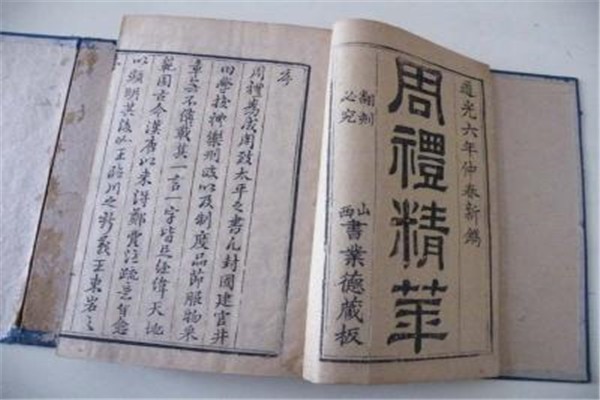 道光六年仲春新鐫
周禮精華
翻刻
必究
山西書業德藏板
序
周禮為成周致太平之書凡封國建官井
田學校禮樂刑政以及制度品節服物采
章無不備載其一言一字皆足經緯天地
範圍古今漢唐以來得鄭賈注疏意旨愈
以顯明其後如王臨川之新義王東岩之